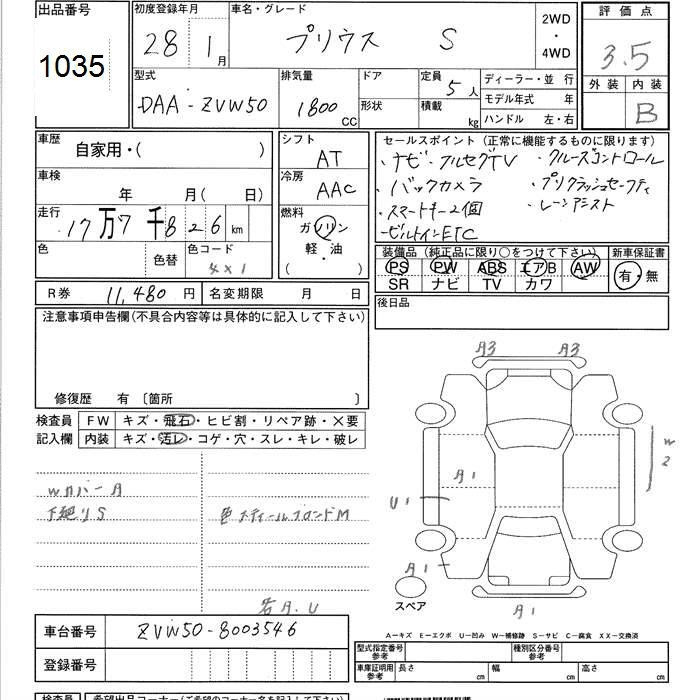 出品番号
1035
初度登録年月
28 1月
車名・グレード
プリウス S
2WD
・
4WD
評価点
3.5
外装 内装
B
型式
DAA-ZVW50
排気量
1800 CC
ドア
形状
定員 5人
積載 kg
ディーラー・並 行
モデル年式 年
ハンドル 左・右
車歴
自家用・( )
車検
年 月( 日)
走行
17万7千826km
色
色替
色コード
4X1
シフト
AT
冷房
AAC
燃料
ガソリン
軽・油
( )
セールスポイント(正常に機能するものに限ります)
・ナビ・フルセグTV ・クルーズコントロール
・バックカメラ ・プリクラッシュセーフティ
・スマートキー2個 ・レーンアシスト
・ビルトインETC
装備品(純正品に限り○をつけて下さい) 新車保証書
PS PW ABS エアB AW 有・無
SR ナビ TV カワ
後日品
R券 11,480円 名変期限 月 日
注意事項申告欄(不具合内容等は具体的に記入して下さい)
修復歴 有 〔箇所 〕
検査員 FW キズ・飛石・ヒビ割・リペア跡・×要
記入欄 内装 キズ・汚レ・コゲ・穴・スレ・キレ・破レ
Wカバー A
下廻りS
色スティールブロンドM
若A.U
A3 A3
W2
A1
U1
A1
A1
スペア
A−キズ E−エクボ U−凹み W−補修跡 S−サビ C−腐食 XX−交換済
車台番号 ZVW50-8003546
登録番号
型式指定番号 参考 種別区分番号 参考
車庫証明用 参考 長さ cm 幅 cm 高さ cm
検査員 希望出品コーナー(ご希望のコーナー名を記入して下さい)